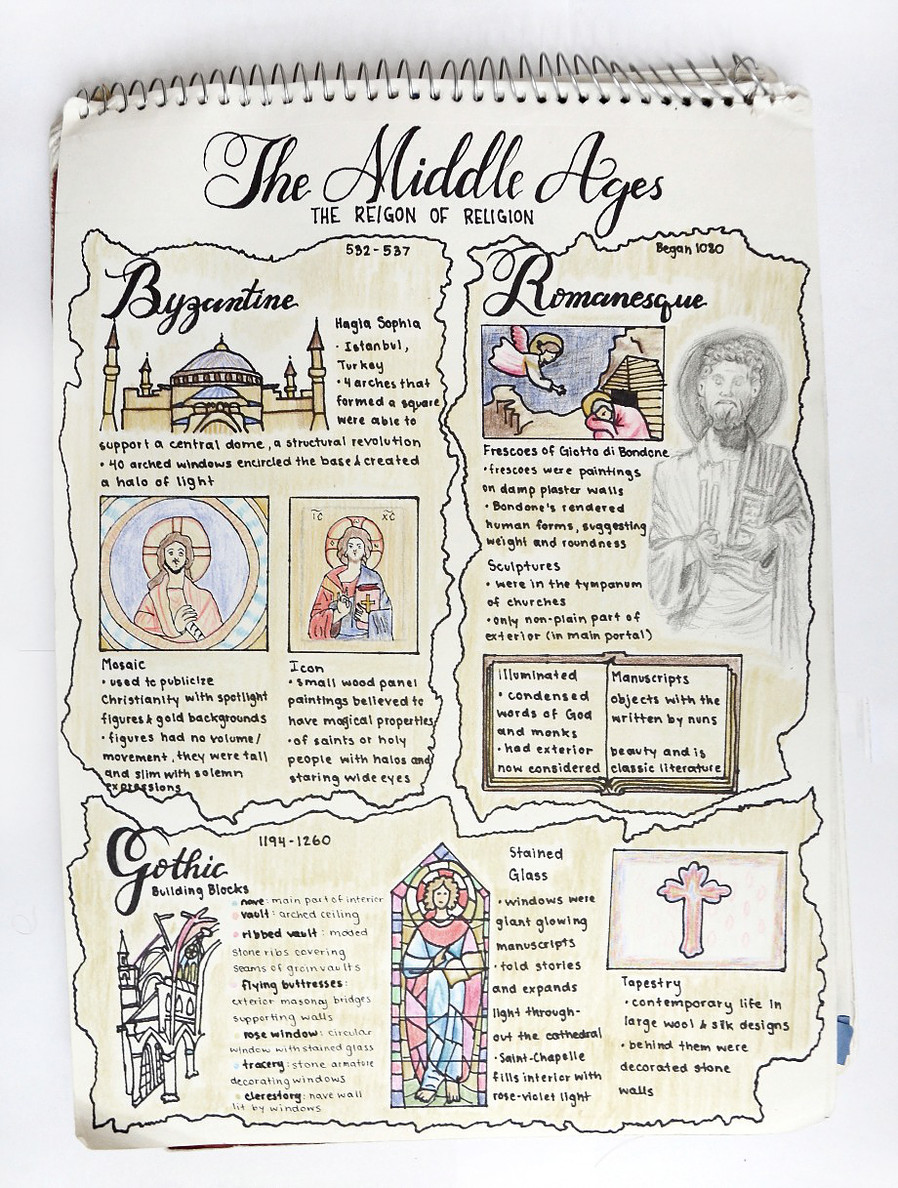 The Middle Ages
THE REIGON OF RELIGION
532-537
Byzantine
Hagia Sophia
• Istanbul,
Turkey
• 4 arches that
formed a square
were able to
support a central dome, a structural revolution
• 40 arched windows encircled the base & created
a halo of light
IC XC
Mosaic
• used to publicize
Christianity with spotlight
figures & gold backgrounds
• figures had no volume/
movement, they were tall
and slim with solemn
expressions
Icon
• small wood panel
paintings believed to
have magical properties
• of saints or holy
people with halos and
staring wide eyes
Began 1080
Romanesque
Frescoes of Giotto di Bondone
• frescoes were paintings
on damp plaster walls
• Bondone's rendered
human forms, suggesting
weight and roundness
Sculptures
• were in the tympanum
of churches
• only non-plain part of
exterior (in main portal)
Illuminated Manuscripts
• condensed objects with the
words of God written by nuns
and monks
• had exterior beauty and is
now considered classic literature
Gothic
1194-1260
Building Blocks
• nave: main part of interior
• vault: arched ceiling
• ribbed vault: moded
stone ribs covering
seams of groin vaults
• flying buttresses:
exterior masonry bridges
supporting walls
• rose window: circular
window with stained glass
• tracery: stone armature
decorating windows
• clerestory: nave wall
lit by windows
Stained
Glass
• windows were
giant glowing
manuscripts
• told stories
and expands
light through-
out the cathedral
• Saint-Chapelle
fills interior with
rose-violet light
Tapestry
• contemporary life in
large wool & silk designs
• behind them were
decorated stone
walls